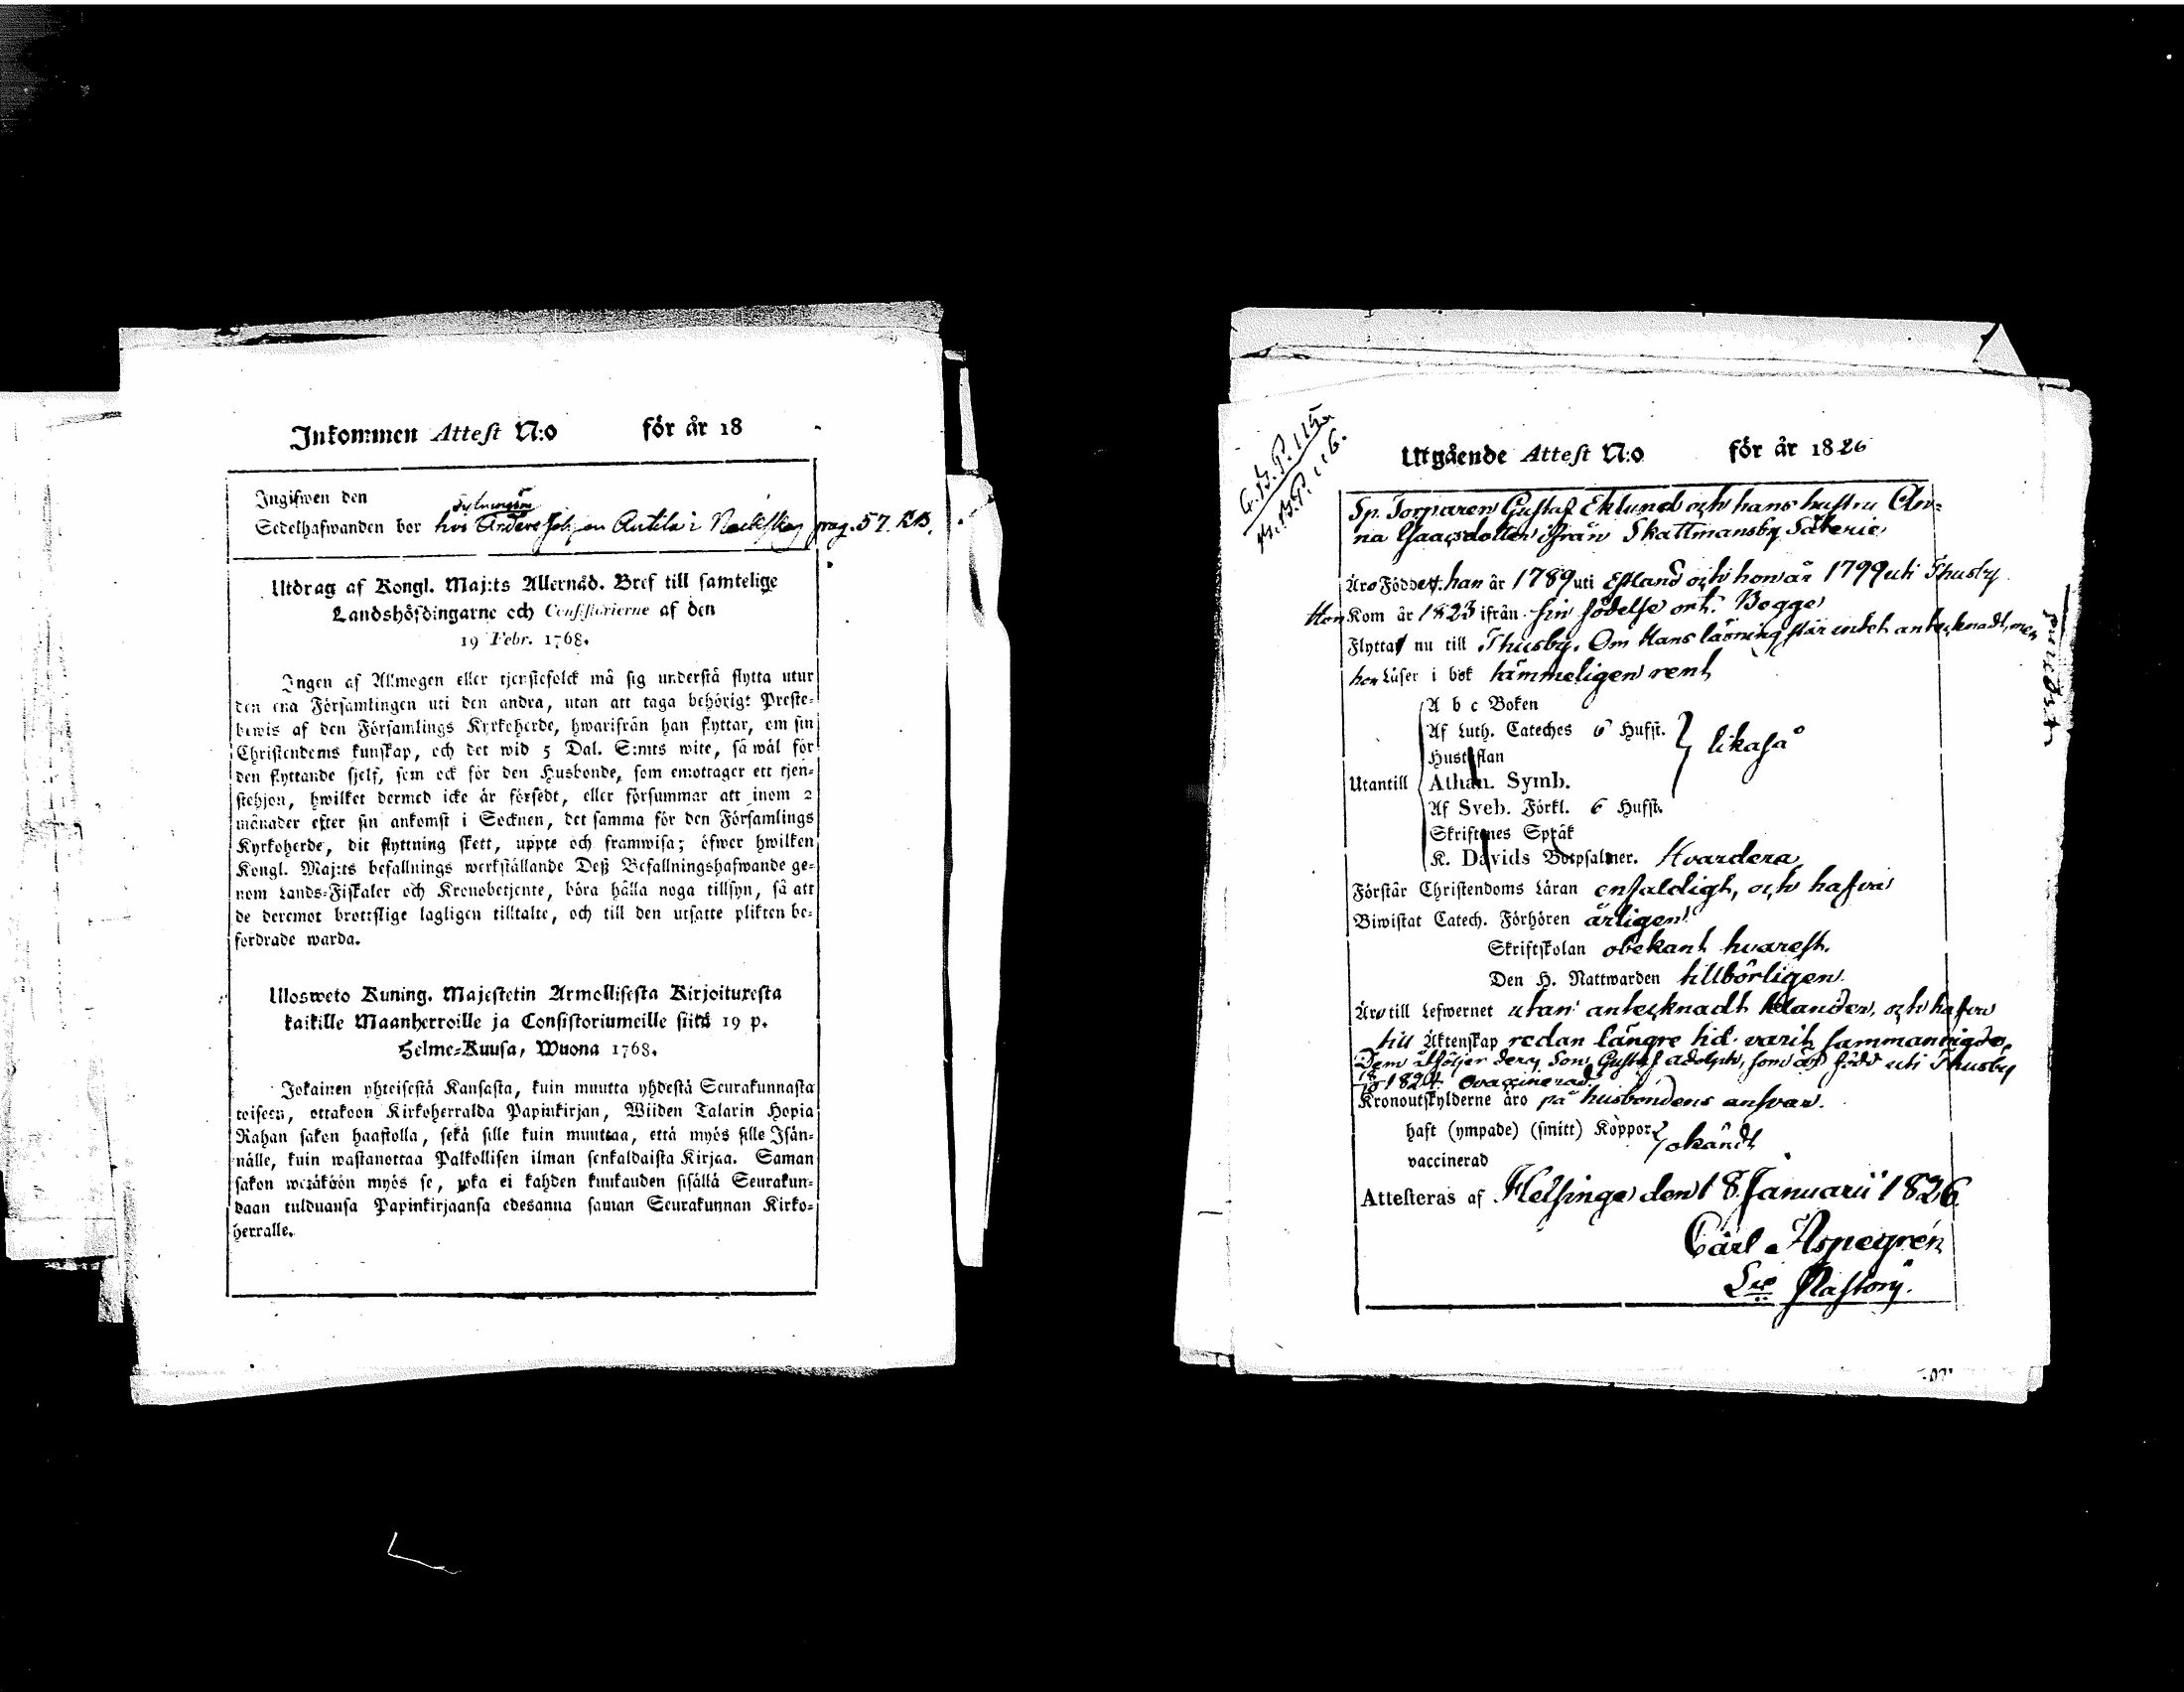 Inkommen Attest N:o för år 18
Ingifwen den
Sedelhafwanden bor hos Anders Antila i pag. 57. KB.
Utdrag af Kongl. Maj:ts Allernåd. Bref till samtelige
Landshöfdingarne och Consistorierne af den
19 Febr. 1768.
Ingen af Allmogen eller tjenstefolck må sig understå flytta utur
den ena Församlingen uti den andra, utan att taga behörigt Preste-
bewis af den Församlings Kyrkoherde, hwarifrån han flyttar, om sin
Christendoms kunskap, och det wid 5 Dal. S:mts wite, så wäl för
den flyttande sjelf, som ock för den Husbonde, som emottager ett tjen-
stehjon, hwilket dermed icke är försedt, eller försummar att inom 2
månader efter sin ankomst i Socknen, det samma för den Församlings
Kyrkoherde, dit flyttning skett, uppte och framwisa; öfwer hwilken
Kongl. Maj:ts befallnings werkställande Deß Befallningshafwande ge-
nom Lands-Fiskaler och Kronobetjente, böra hålla noga tillsyn, så att
de deremot brottslige lagligen tilltalte, och till den utsatte plikten be-
fordrade warda.
Ulosweto Kuning. Majestetin Armollisesta Kirjoituxesta
kaikille Maanherroille ja Consistoriumeille siitä 19 p.
Helme-Kuusa, Wuona 1768.
Jokainen yhteisestä Kansasta, kuin muutta yhdestä Seurakunnasta
toiseen, ottakoon Kirkoherralda Papinkirjan, Wiiden Talarin Hopia
Rahan sakon haastolla, sekä sille kuin muuttaa, että myös sille Isän-
nälle, kuin wastanottaa Palkollisen ilman senkaldaista Kirjaa. Saman
sakon wetäköön myös se, joka ei kahden kuukauden sisällä Seurakun-
daan tulduansa Papinkirjaansa edesanna saman Seurakunnan Kirko-
herralle.
Utgående Attest N:o för år 1826
Sp. Torparen Gustaf Eklund och hans hustru An-
na Isaacsdotter ifrån Skattmansby Säterie
Äro Födde: han år 1789 uti Estland och hon år 1799 uti Thusby
Hon Kom år 1823 ifrån sin födelse ort. Begge
Flytta nu till Thusby. Om Hans läsning står intet antecknadt, men
hon Läser i bok tämmeligen rent
A b c Boken
Af Luth. Cateches 6 Hufst. likaså
Hustaflan
Utantill Athan. Symb.
Af Sveb. Förkl. 6 Hufst.
Skriftenes Språk
K. Davids Botpsalmer. Hvardera
Förstår Christendoms Läran enfaldigt, och hafva
Biwistat Catech. Förhören årligen
Skriftskolan obekant hvarest.
Den H. Nattwarden tillbörligen.
Äro till Lefwernet utan antecknadt klander, och hafva
till Äktenskap redan längre tid varit sammanvigde.
Dem åtföljer Son Gustaf Adolph, som är född uti Thusby
1824 ovaccinerad.
Kronoutskylderne äro på husbondens ansvar.
haft (ympade) (smitt) Koppor okändt
vaccinerad
Attesteras af Helsinge den 18 Januarii 1826
Carl Aspegrén